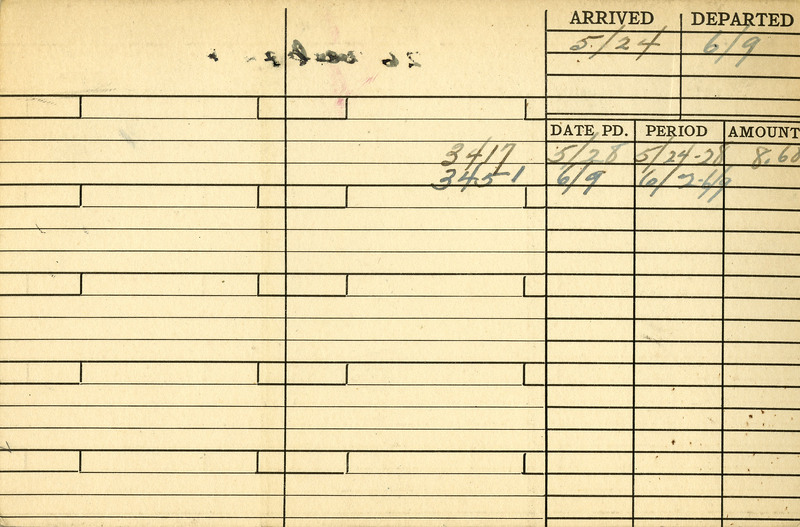 ARRIVED DEPARTED
5/24 6/9
DATE PD. PERIOD AMOUNT
3417 5/28 5/24-28 8.60
3451 6/9 6/2-6/9